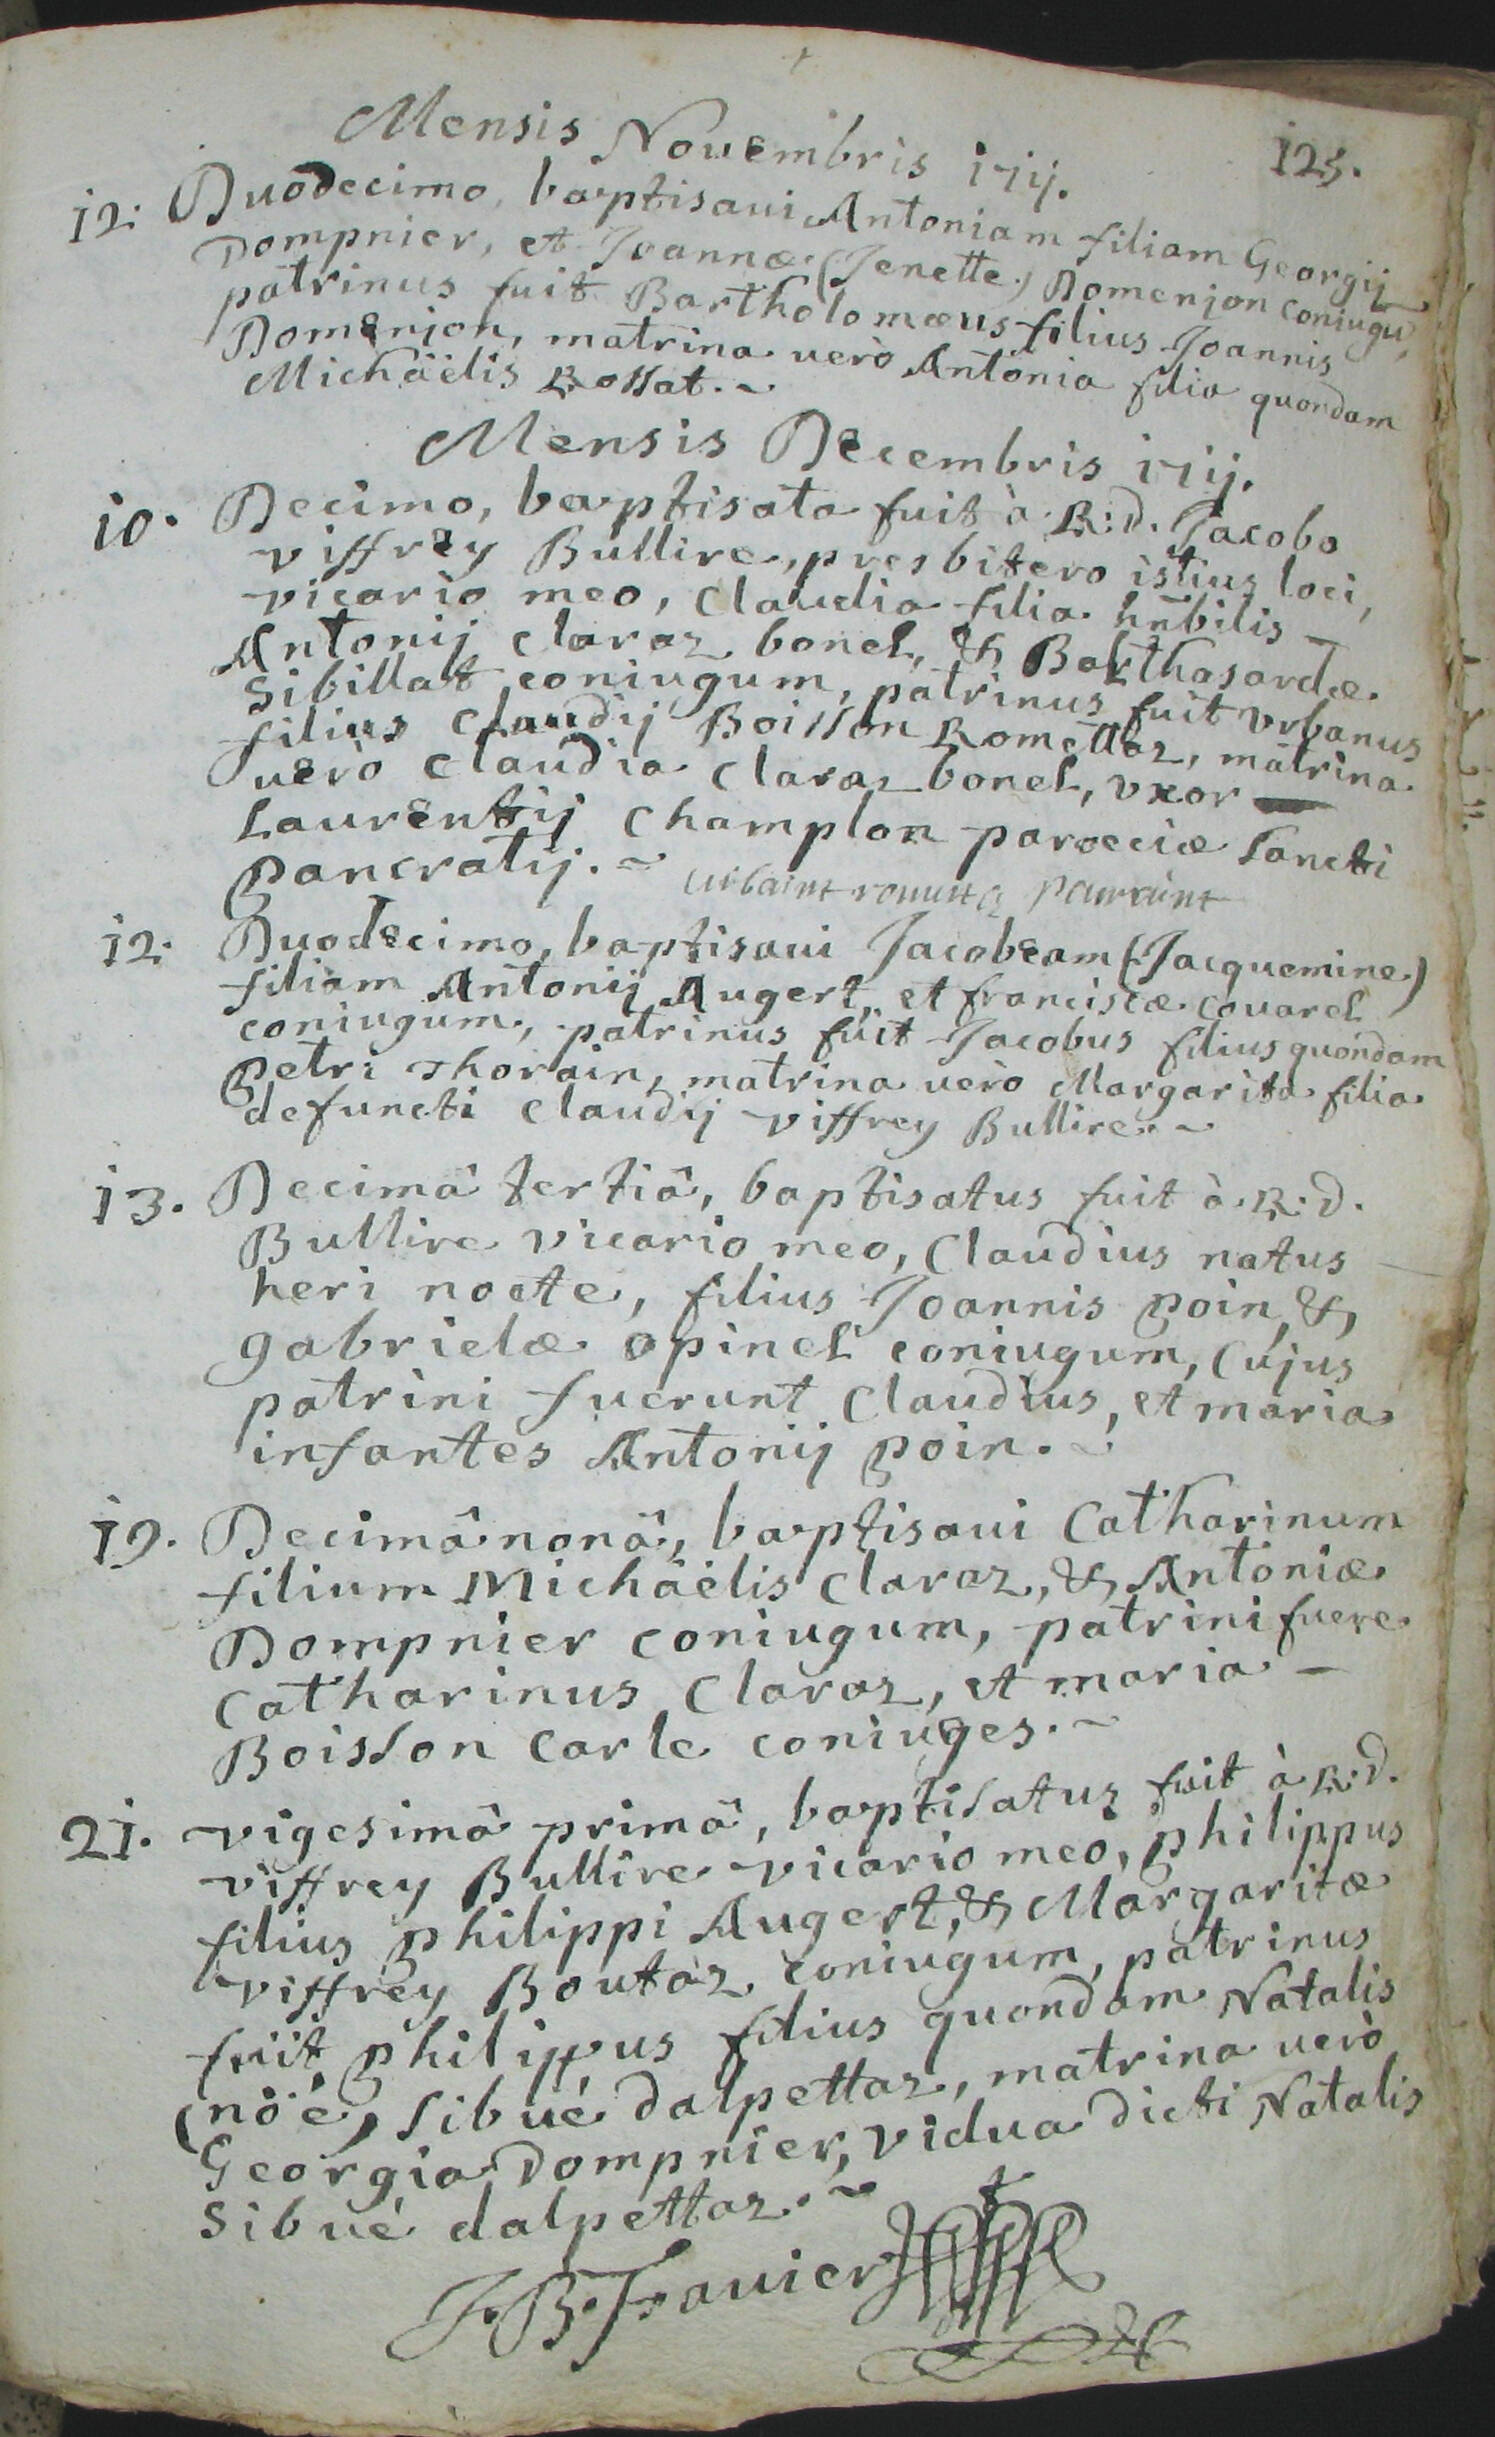 Mensis Novembris 1711.
125.
12. Duodecimo, baptisaui Antoniam filiam Georgij
Dompnier, et Joannæ (Jenette) Domenjon coniugũ,
patrinus fuit Bartholomæus filius Joannis
Domenjon, matrina uerò Antonia filia quondam
Michäelis Rossat.
Mensis Decembris 1711.
10. Decimo, baptisata fuit à R:d. Jacobo
viffrey Bullire, presbitero istius loci,
vicario meo, Claudia filia hñbilis
Antonij claraz bonel, & Balthasardæ
Sibillat coniugum, patrinus fuit vrbanus
filius Claudij Boisson Romettaz, matrina
uerò Claudia Claraz bonel, vxor
Laurentij Champlon paroeciæ Sancti
Pancratij.
12. Duodecimo, baptisaui Jacobeam (Jacquemine)
filiam Antonij Augert, et franciscæ couarel
coniugum, patrinus fuit Jacobus filius quondam
Petri Thorain, matrina uerò Margarita filia
defuncti Claudij viffrey Bullire.
13. Decimâ tertiâ, baptisatus fuit à R:d.
Bullire vicario meo, Claudius natus
heri nocte, filius Joannis poin, &
gabrielæ opinel coniugum, cujus
patrini fuerunt Claudius, et maria
infantes Antonij poin.
19. Decimâ nonâ, baptisaui Catharinum
filium Michäelis Claraz, & Antoniæ
Dompnier coniugum, patrini fuere
Catharinus Claraz, et maria
Boisson Carle coniuges.
21. vigesimâ primâ, baptisatus fuit à R:d.
viffrey Bullire vicario meo, philippus
filius philippi Augert, & Margaritæ
viffrey Boutaz coniugum, patrinus
fuit philippus filius quondam Natalis
(nöé) Sibué dalpettaz, matrina uerò
Georgia Dompnier, vidua dicti Natalis
Sibué dalpettaz.
J. B. Fauier